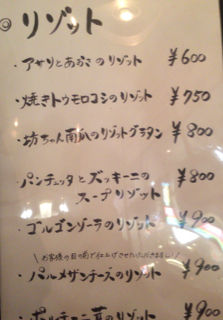 ◎リゾット
・アサリとあおさのリゾット ¥600
・焼きトウモロコシのリゾット ¥750
・坊ちゃん南瓜のリゾットグラタン ¥800
・パンチェッタとズッキーニの
スープリゾット ¥800
・ゴルゴンゾーラのリゾット ¥900
\お客様の目の前で仕上げさせていただきます!/
・パルメザンチーズのリゾット ¥900
・ポルチーニ茸のリゾット ¥900